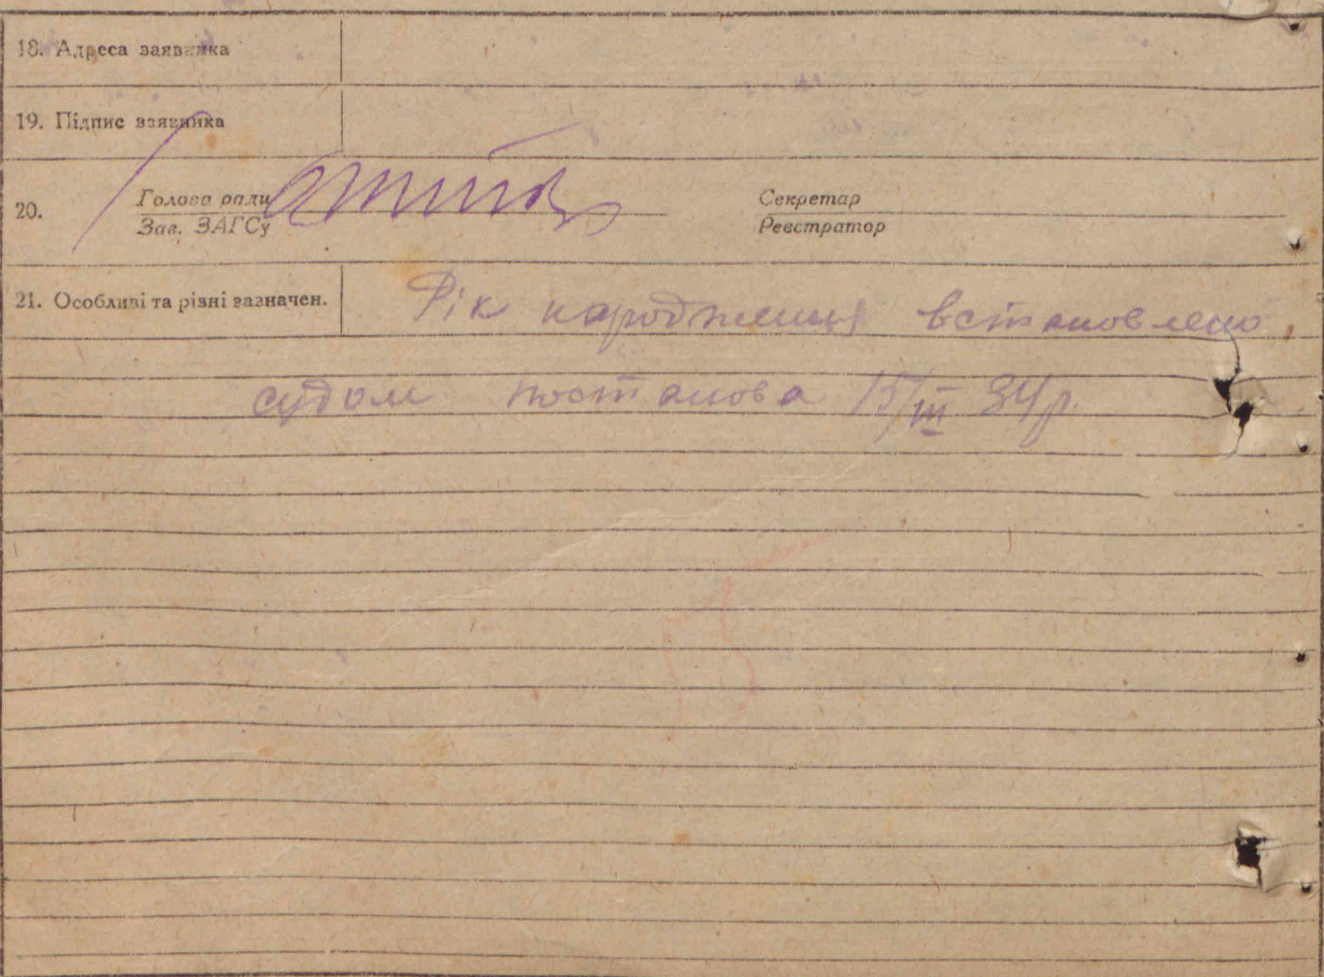 18. Адреса заявника
19. Підпис заявника
20. Голова ради Секретар
Зав. ЗАГСу Реєстратор
21. Особливі та різні зазначен. Рік народження встановлено
судом постанова 15/III 34р.